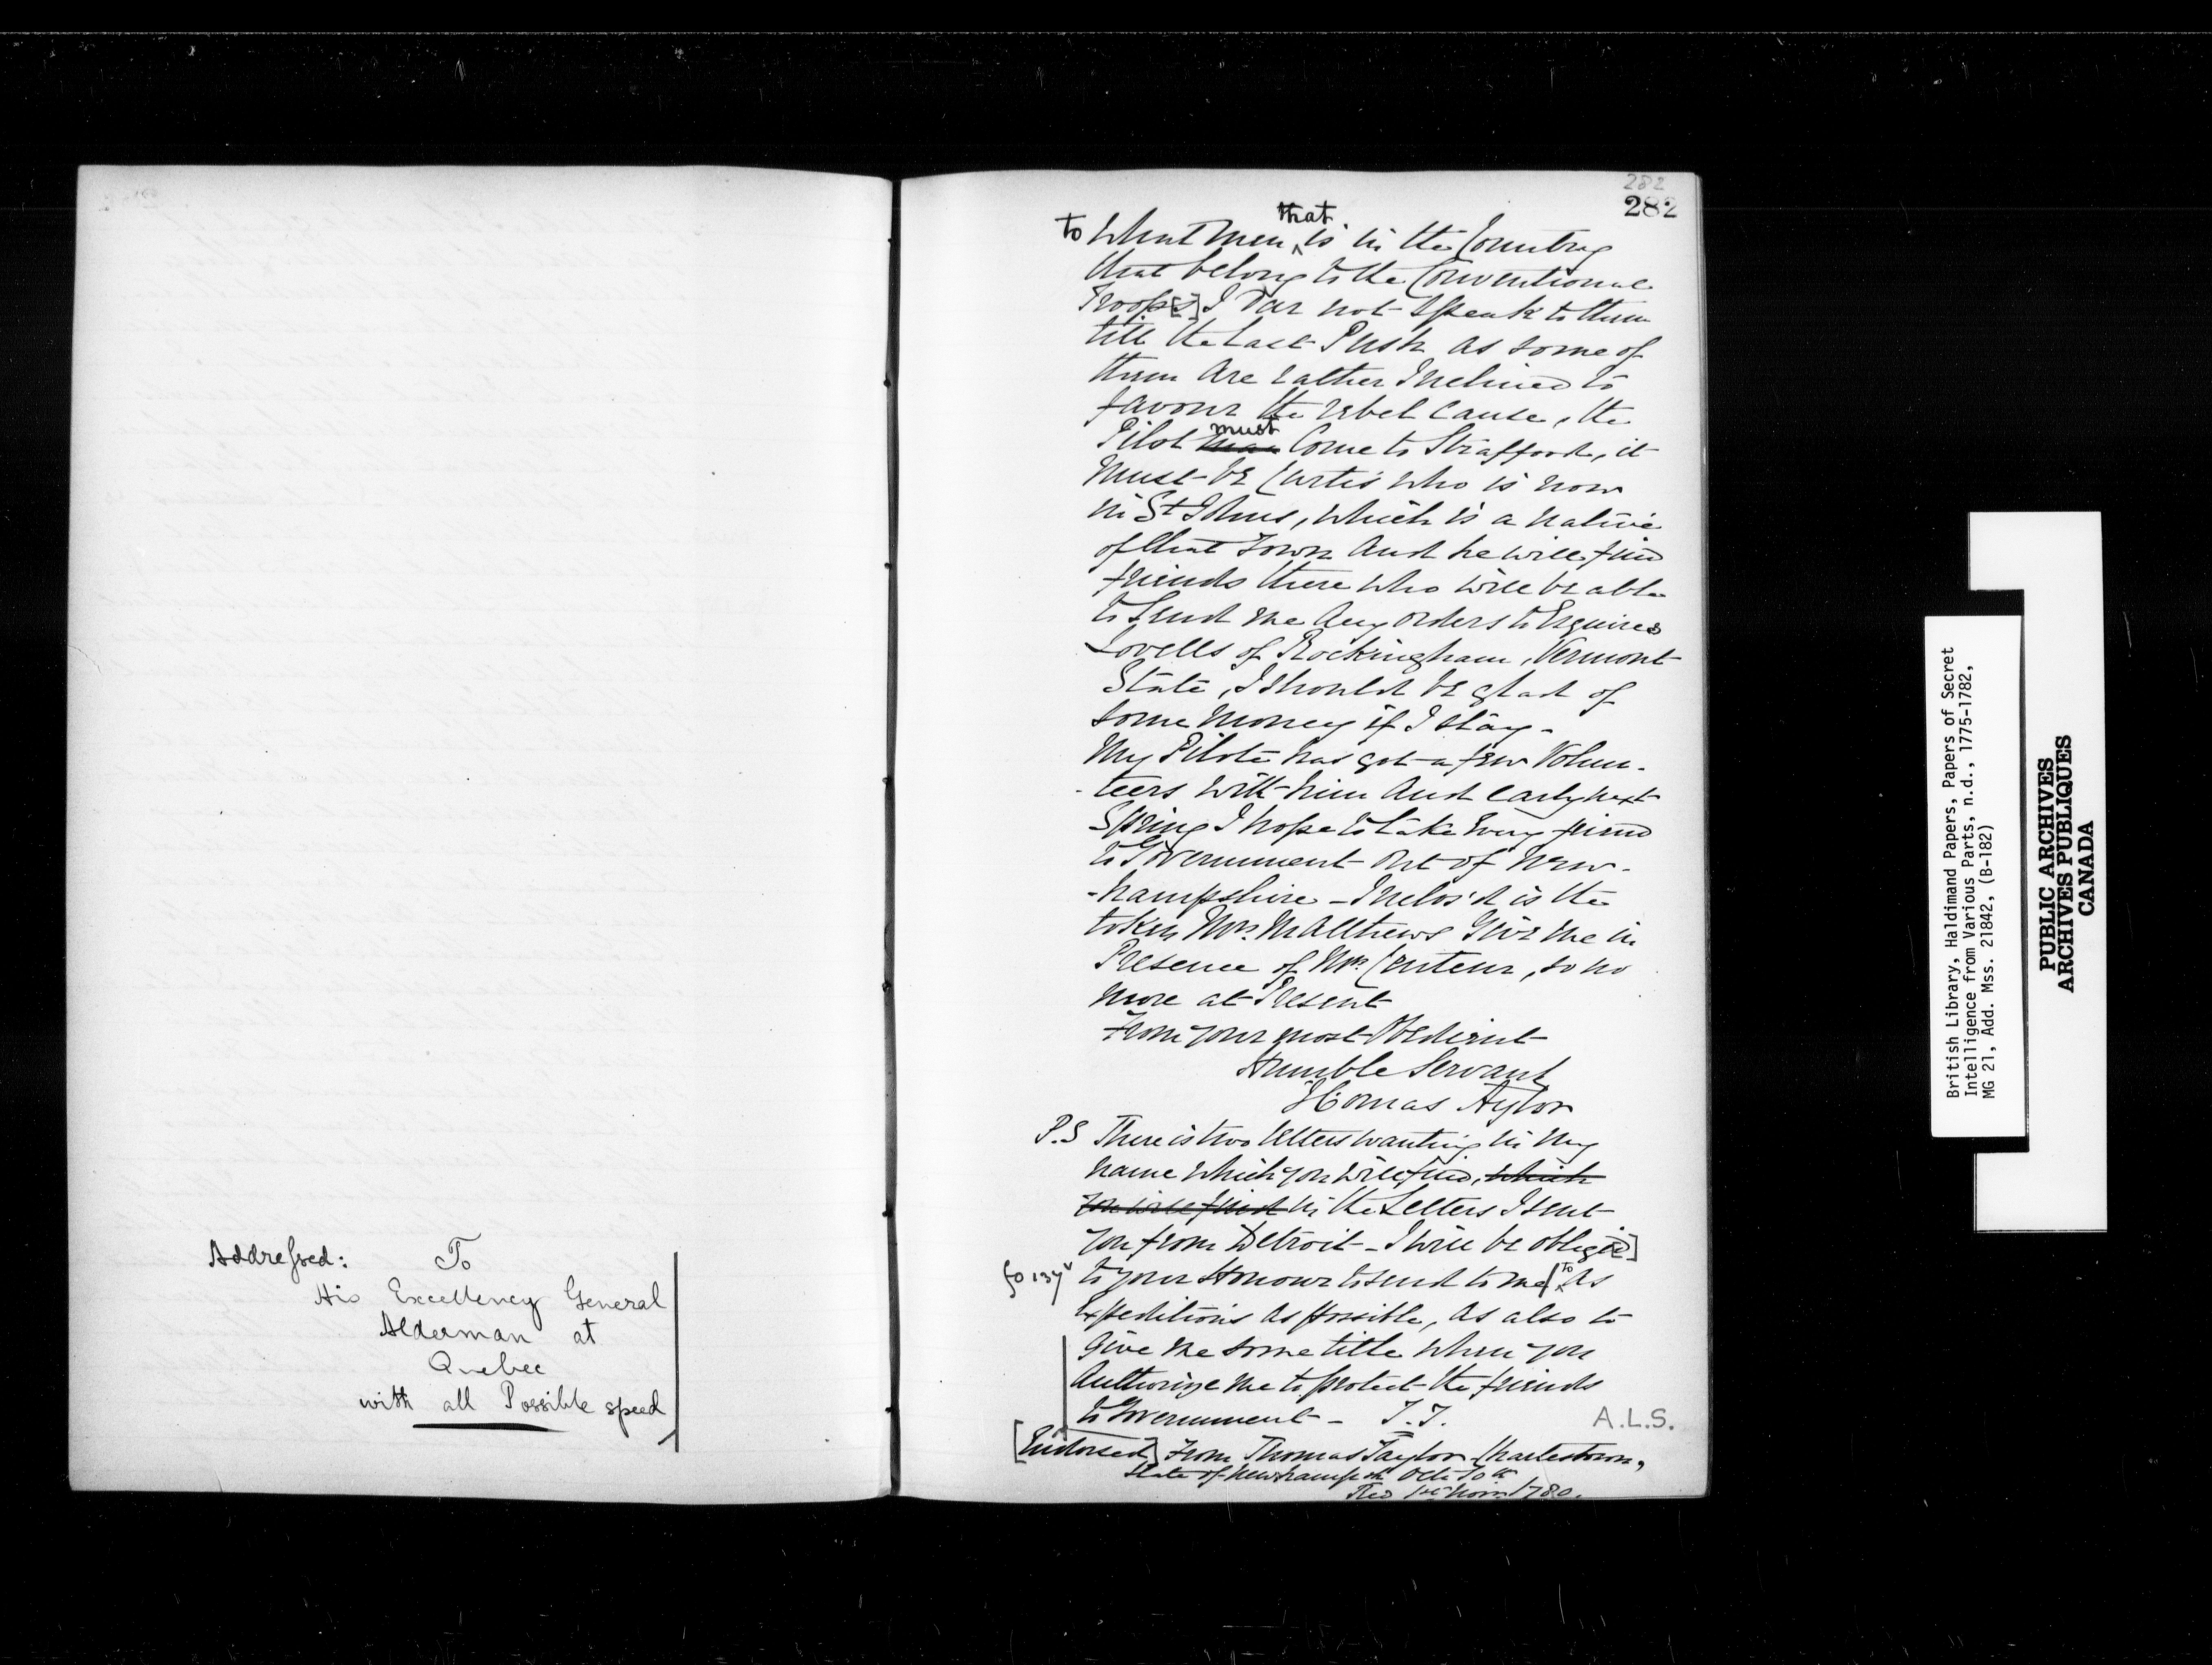 Addressed: To
His Excellency General
Alderman at
Quebec
with all Possible speed
282
282
to what men that is in the Country
that belong to the Conventional
Troops[s] I Dar not Speak to them
till the Last Push as some of
them Are rather Inclined to
favour the rebel Cause, the
Pilot must Come to Strafford, it
Must be Curtis who is now
in St Johns, which is a native
of that Town And he will find
friends there who will be able
to Send me Any orders to Esquires
Lovells of Rockingham, Vermont
State, I should be glad of
some Money if I stay -
My Pilote has got a few Volun-
-teers with him And early next
Spring I hope to take Every friend
to Government Out of New-
-hampshire - Inclos'd is the
token Mr. Matthews Give me in
Presence of Mr. , so no
more at Present
From your most Obedient
Humble Servant
Thomas Aylor
P.S There is two letters wanting in my
name which you will find, which
you will find in the Letters I sent
you from Detroit - I will be oblige[d]
fo 137v to your Honour to send to me to As
Expeditious As possible, As also to
Give me some title when you
Authorize me to protect the friends
to Government - T.T.
A.L.S.
[Endorsed] From Thomas Taylor Charlestown,
State of Newhampsh. Octr 10th
Red 1st Novr. 1780.
British Library, Haldimand Papers, Papers of Secret
Intelligence from Various Parts, n.d., 1775-1782,
MG 21, Add. Mss. 21842, (B-182)
PUBLIC ARCHIVES
ARCHIVES PUBLIQUES
CANADA